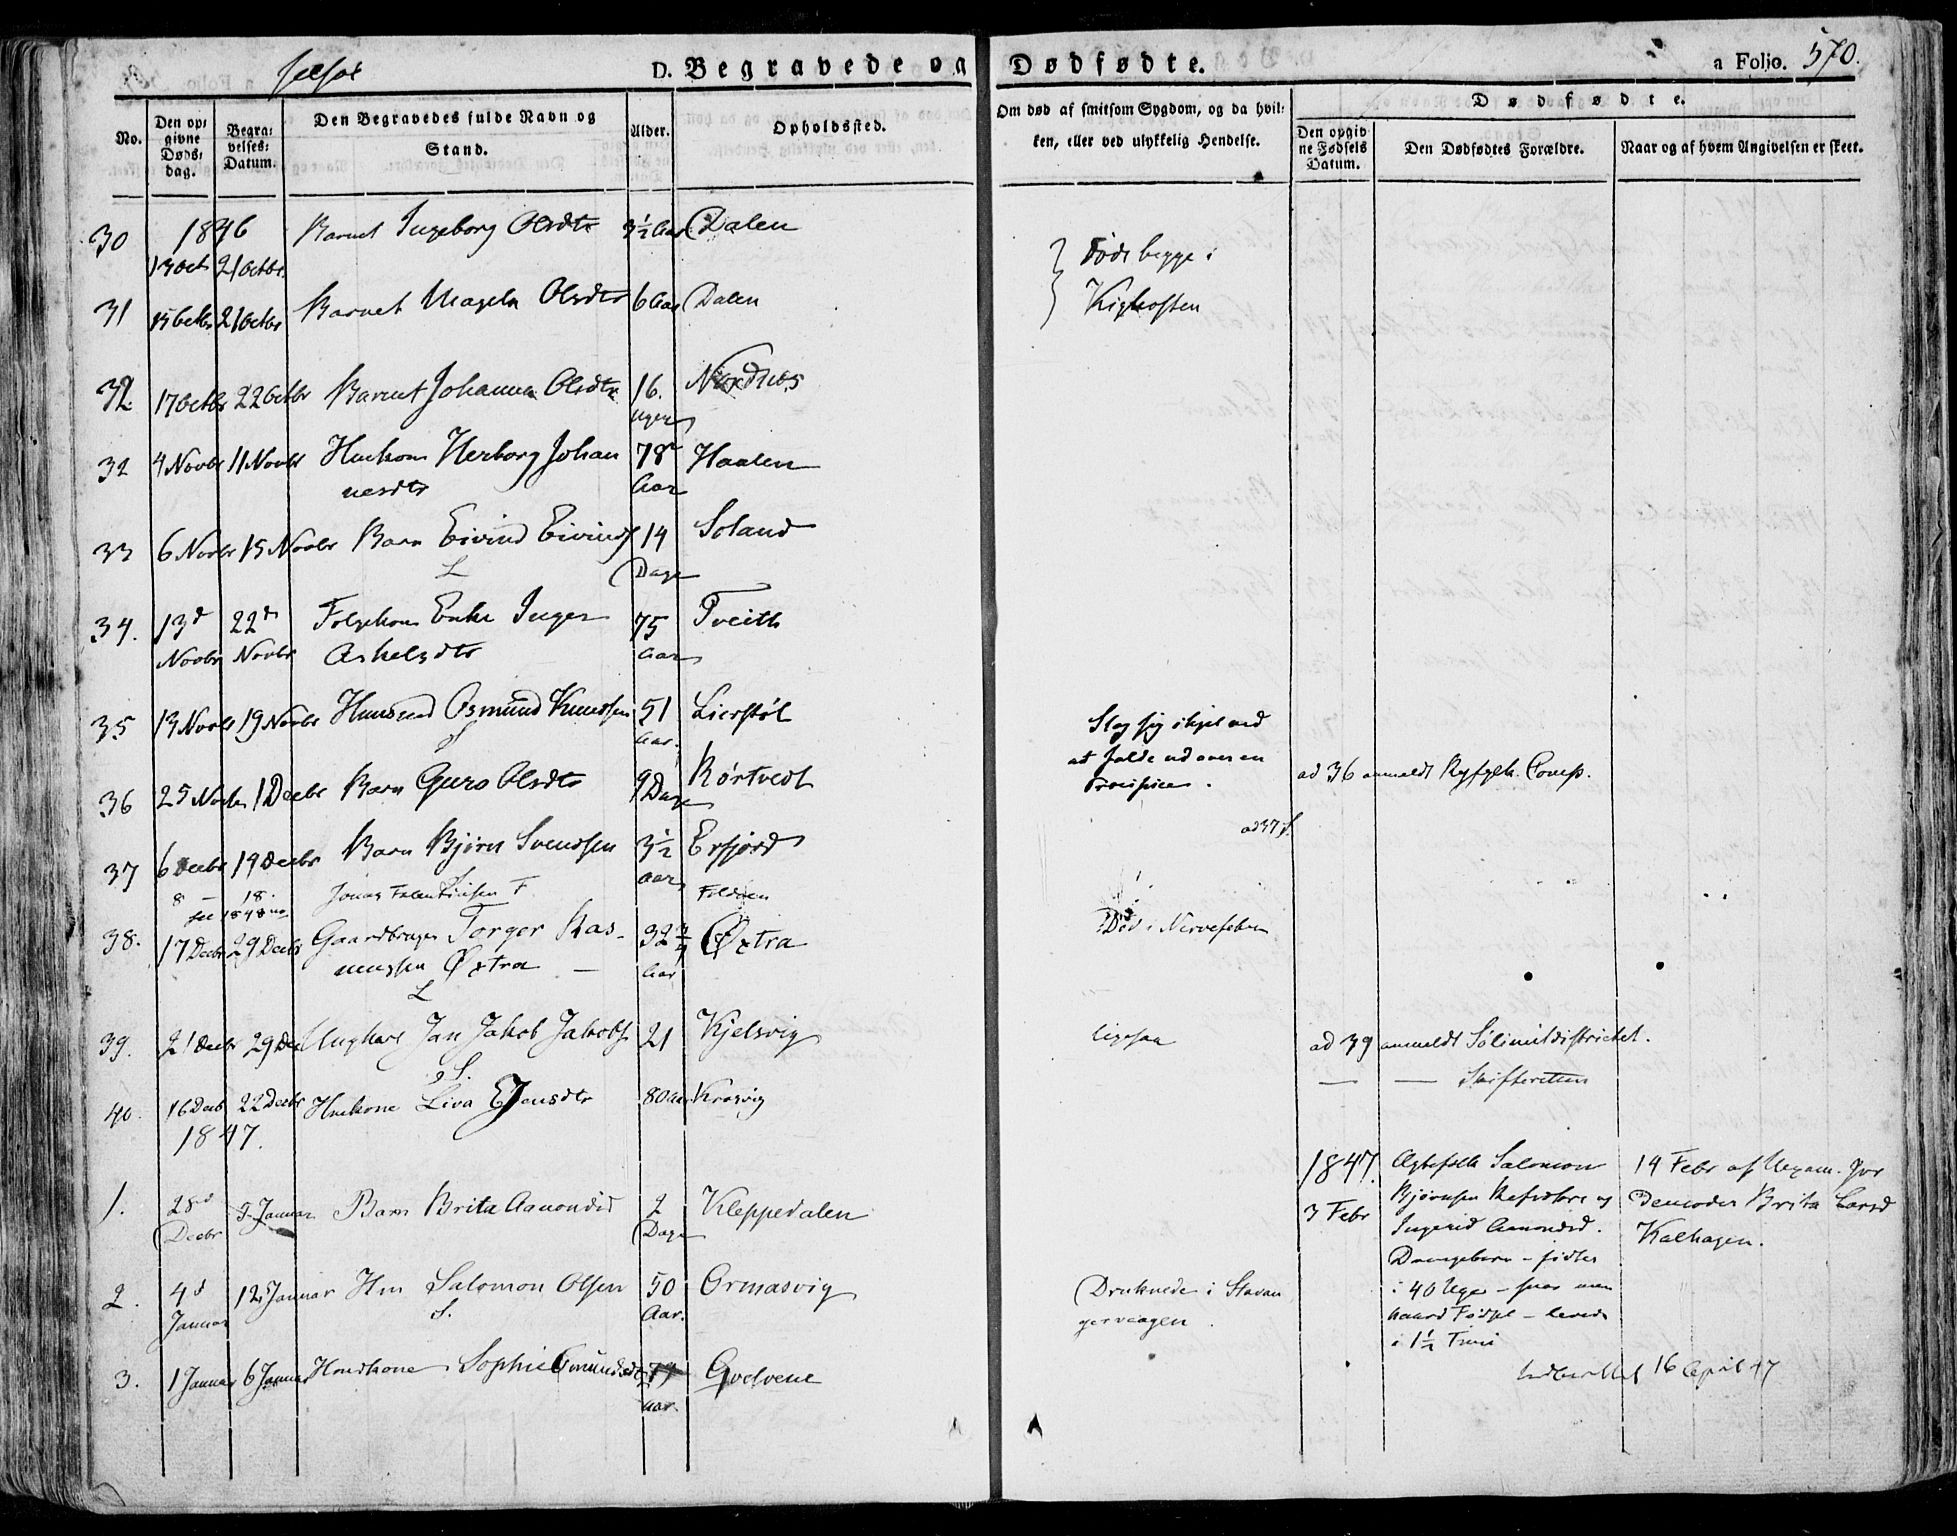 Jelsøe D. Begravede og Dødfødte. a Folio. 570.
No. Den opgivne Dødsdag. Begravelses-Datum. Den Begravedes fulde Navn og Stand. Alder. Opholdssted. Om død af smitsom Sygdom, og da hvilken, eller ved ulykkelig Hendelse.
Dødfødte.
Den opgivne Fødsels Datum. Den Dødfødtes Forældre. Naar og af hvem Angivelsen er skeet.
1846
30 13 Oct 21 Octbr. Barnet Ingeborg Olsdtr 3½ Aar Dalen } Døde begge i
31 15 Octbr 21 Octbr Barnet Olsdtr 6 Aar Dalen } Kighosten
32 17 Octbr 22 Octbr Barnet Johanna Olsdtr 16. Uger Nordnes
32 4 Novbr 11 Novbr Huuskone Herborg Johan
nesdtr 78 Aar Haalen
33 6 Novbr 15 Novbr Barn Eivind Eivinds 14 Dage Soland
L
34. 13d Novbr 22d Novbr Enke Inger
Askelsdtr 75 Aar Tveith
35 13 Novbr 19 Novbr Huusmd Osmund Knudsen 51 Aar. Lierstøl Slog sig ihjel ved
at falde ud over en
36 25 Novbr 1 Decbr Barn Guro Olsdtr 9 Dage Rørtvedt
ad 36 anmeldt Ryfylk. Comp.
ad 37 S.
37 6 Decbr 19 Decbr Barn Bjørn Svendsen 3½ Aar Erfjord
8 – 18. Jonas F. Foldøen
see 1848
38. 17 Decbr 29 Decbr Gaardbruger Torger Ras-
mussen Øxtra – 32¾ Aar Øxtra Død i Nervefeber
L
39. 21 Decbr 29 Dec Ungkarl Jan Jakob Jakobs 21 Kjelsvig ligesaa
ad 39 anmeldt Sølimitdistrictet.
— — Skifteretten
S.
40. 16 Decb 22 Decbr Huuskone Liva Jensdtr 80 Aar Krosvig
1847.
1. 28d Decbr 3 Januar Barn Brita Aamondsd 2 Dage Kleppedalen
2. 4d Januar 12 Januar Hm Salomon Olsen 50 Aar. Ormasvig Druknede i Stavan
gervaagen.
S.
3. 1 Januar 6 Januar Huuskone Sophie Gmundsdtr 79 Aar Gvelvene
1847. 3 Febr Ægtefolk Salomon
Bjørnsen og
Ingerid Aamondsd.
Drengebarn – fødtes
i 40 Uge – svar men
haard Fødsel – levede
i 1½ Time
14 Febr af Uexam. Jor
demoder Brita Larsd
Kalhagen.
Indberettet 16 April 47